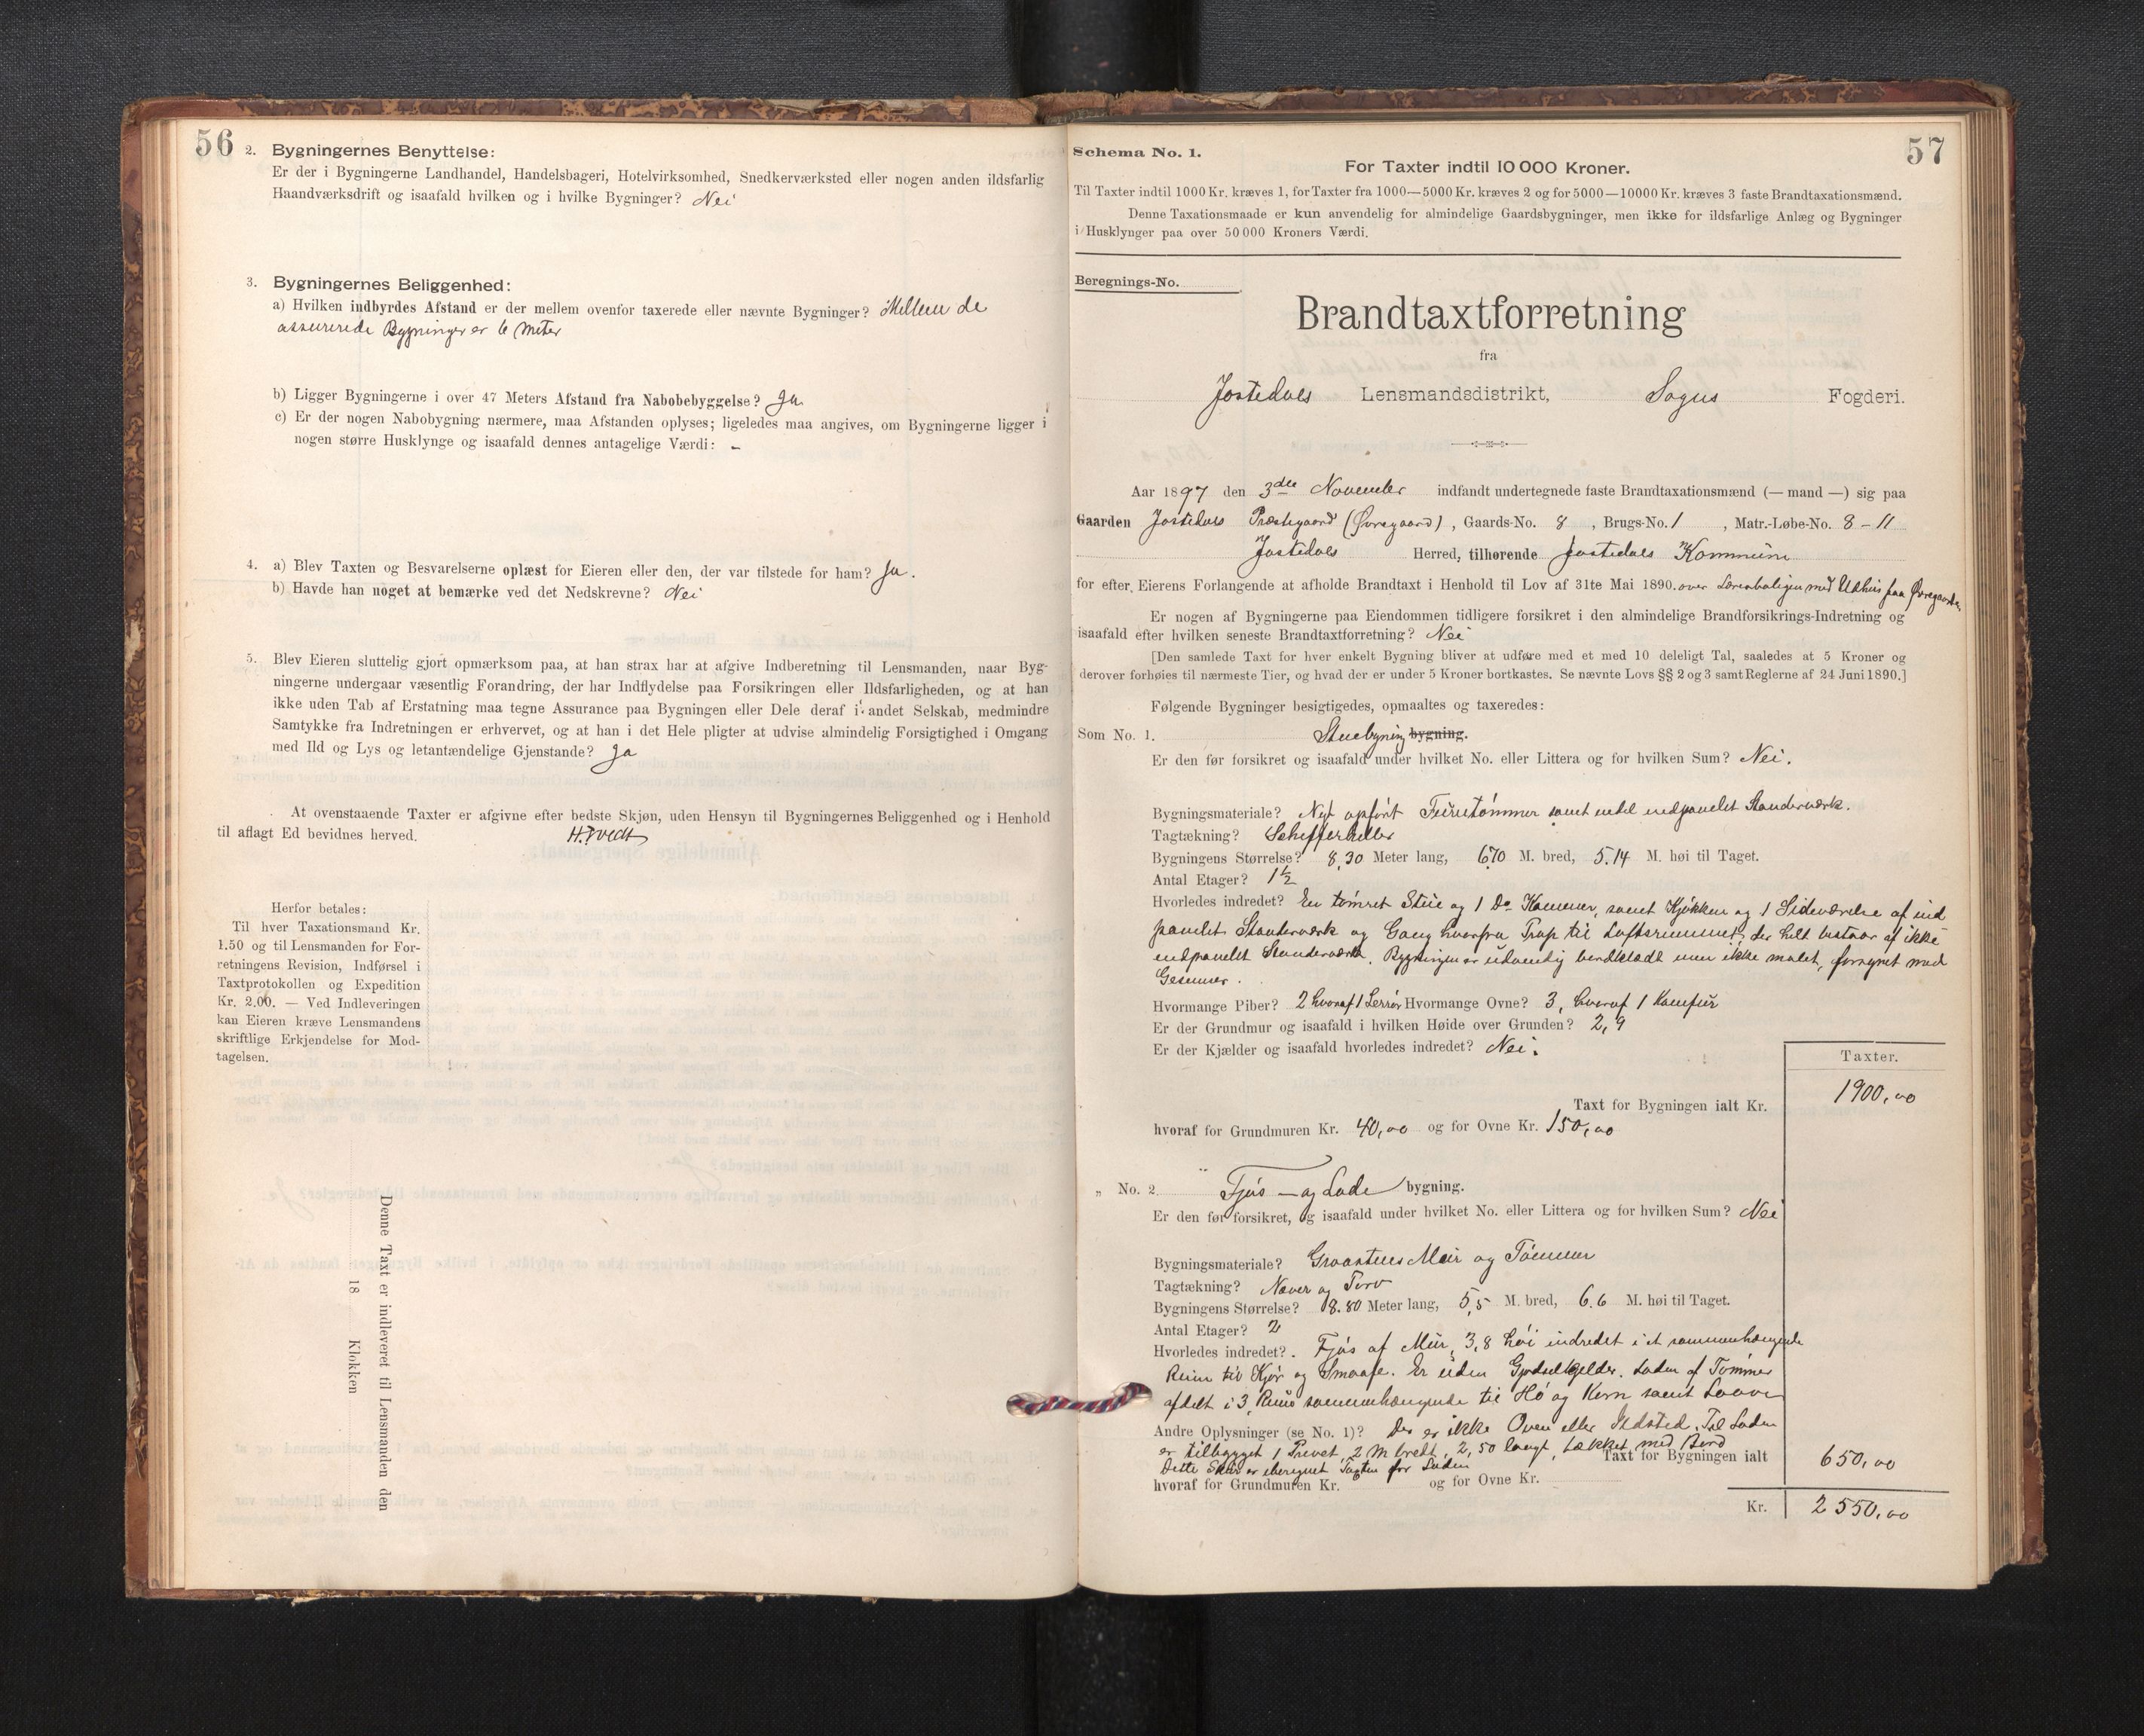 56
2. Bygningernes Benyttelse:
Er der i Bygningerne Landhandel, Handelsbageri, Hotelvirksomhed, Snedkerværksted eller nogen anden ildsfarlig
Haandværksdrift og isaafald hvilken og i hvilke Bygninger? Nei
3. Bygningernes Beliggenhed:
a) Hvilken indbyrdes Afstand er der mellem ovenfor taxerede eller nævnte Bygninger? Mellem de
assurerede Bygninger er 6 Meter
b) Ligger Bygningerne i over 47 Meters Afstand fra Nabobebyggelse? Ja
c) Er der nogen Nabobygning nærmere, maa Afstanden oplyses; ligeledes maa angives, om Bygningerne ligger i
nogen større Husklynge og isaafald dennes antagelige Værdi: -
4. a) Blev Taxten og Besvarelserne oplæst for Eieren eller den, der var tilstede for ham? Ja.
b) Havde han noget at bemærke ved det Nedskrevne? Nei
5. Blev Eieren sluttelig gjort opmærksom paa, at han strax har at afgive Indberetning til Lensmanden, naar Byg-
ningerne undergaar væsentlig Forandring, der har Indflydelse paa Forsikringen eller Ildsfarligheden, og at han
ikke uden Tab af Erstatning maa tegne Assurance paa Bygningen eller Dele deraf i andet Selskab, medmindre
Samtykke fra Indretningen er erhvervet, og at han i det Hele pligter at udvise almindelig Forsigtighed i Omgang
med Ild og Lys og letantændelige Gjenstande? Ja
At ovenstaaende Taxter er afgivne efter bedste Skjøn, uden Hensyn til Bygningernes Beliggenhed og i Henhold
til aflagt Ed bevidnes herved.
Herfor betales:
Til hver Taxationsmand Kr.
1.50 og til Lensmanden for For-
retningens Revision, Indførsel i
Taxtprotokollen og Expedition
Kr. 2.00. — Ved Indleveringen
kan Eieren kræve Lensmandens
skriftlige Erkjendelse for Mod-
tagelsen.
Denne Taxt er indleveret til Lensmanden den
18 Klokken
57
Schema No. 1.
For Taxter indtil 10 000 Kroner.
Til Taxter indtil 1000 Kr. kræves 1, for Taxter fra 1000—5000 Kr. kræves 2 og for 5000—10000 Kr. kræves 3 faste Brandtaxationsmænd.
Denne Taxationsmaade er kun anvendelig for almindelige Gaardsbygninger, men ikke for ildsfarlige Anlæg og Bygninger
i Husklynger paa over 50 000 Kroners Værdi.
Beregnings-No.
Brandtaxtforretning
fra
Jostedals Lensmandsdistrikt, Sogns Fogderi.
Aar 1897 den 3die November indfandt undertegnede faste Brandtaxationsmænd (— mand —) sig paa
Gaarden Jostedals Præstegaard (Øvregaard), Gaards-No. 8, Brugs-No. 1, Matr.-Løbe-No. 8 - 11
Jostedals Herred, tilhørende Jostedals Kommune
for efter Eierens Forlangende at afholde Brandtaxt i Henhold til Lov af 31te Mai 1890. over Lærerboligen med Udhus paa Øvregaarden
Er nogen af Bygningerne paa Eiendommen tidligere forsikret i den almindelige Brandforsikrings-Indretning og
isaafald efter hvilken seneste Brandtaxtforretning? Nei
[Den samlede Taxt for hver enkelt Bygning bliver at udføre med et med 10 deleligt Tal, saaledes at 5 Kroner og
derover forhøies til nærmeste Tier, og hvad der er under 5 Kroner bortkastes. Se nævnte Lovs §§ 2 og 3 samt Reglerne af 24 Juni 1890.]
Følgende Bygninger besigtigedes, opmaaltes og taxeredes:
Som No. 1. Stuebygning bygning.
Er den før forsikret og isaafald under hvilket No. eller Littera og for hvilken Sum? Nei.
Bygningsmateriale? Nyt opført Furutømmer samt endel indpanelet Standerværk.
Tagtækning? Schifferheller
Bygningens Størrelse? 8,30 Meter lang, 6,70 M. bred, 5.14 M. høi til Taget.
Antal Etager? 1½
Hvorledes indredet? En tømret Stue og 1 Do Kammer, samt Kjøkken og 1 Sideværelse af ind
panelet Standerværk og Gang hvorfra Trap til Loftsrummet, der helt bestaar af ikke
indpanelet Standerværk. Bygningen er udvendig bordklædt men ikke malet, forsynet med
Gesimser.
Hvormange Piber? 2 hvoraf 1 Hvormange Ovne? 3, hvoraf 1 Komfur
Er der Grundmur og isaafald i hvilken Høide over Grunden? 2,9
Er der Kjælder og isaafald hvorledes indredet? Nei.
Taxter.
Taxt for Bygningen ialt Kr. 1900,00
hvoraf for Grundmuren Kr. 40,00 og for Ovne Kr. 150,00
„ No. 2. Fjøs - og Lade bygning.
Er den før forsikret, og isaafald under hvilket No. eller Littera og for hvilken Sum? Nei
Bygningsmateriale? Graastens Mur og Tømmer
Tagtækning? Næver og Torv
Bygningens Størrelse? 8.80 Meter lang, 5,5 M. bred, 6.6 M. høi til Taget.
Antal Etager? 2
Hvorledes indredet? Fjøs af Mur, 3,8 høi indredet i et sammenhængende
Rum til Kjør og Smaafe. Er uden Gjødselkjelder. Laden af Tømmer
afdelt i 3 Rum sammenhængende til Hø og Korn samt Laave
Andre Oplysninger (se No. 1)? Der er ikke Oven eller Ildsted. Til Laden
er tilbygget 1 Privet, 2 M bredt, 2,50 langt, tækket med Bord
Dette Skur er iberegnet Taxten for Laden
Taxt for Bygningen ialt 650,00
hvoraf for Grundmuren Kr. og for Ovne Kr.
Kr. 2550,00